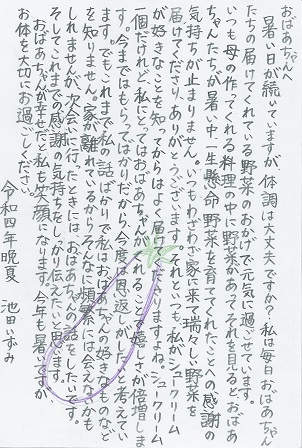 おばあちゃんへ
暑い日が続いていますが、体調は大丈夫ですか？私は毎日おばあちゃん
たちの届けてくれている野菜のおかげで元気に過ごせています。
いつも母の作ってくれる料理の中に野菜があって、それを見るとおばあ
ちゃんたちが暑い中一生懸命野菜を育ててくれたことへの感謝の
気持ちが止まりません。いつもわざわざ家に来て瑞々しい野菜を
届けてくださり、ありがとうございます。それといつも、私がシュークリーム
が好きなことを知ってからはよく届けてくださりますよね。シュークリーム
一個だけれど、私にとってはおばあちゃんがくれることで嬉しさが倍増しま
す。今まではもらってばかりだから、今度は恩返しがしたいと考えてい
ます。でもこれまで私の話ばかりで私はおばあちゃんの好きなものなど
を知りません。家が離れているからそんなに頻繁には会えないかも
しれませんが、次会いに行ったときには、おばあちゃんの話をしたいです。
そしてこれまでの感謝の気持ちをしっかり伝えたいと思います。
おばあちゃんが幸せだと私も笑顔になります。今年も暑いですが
お体を大切にお過ごしください。
令和四年晩夏　池田いずみ